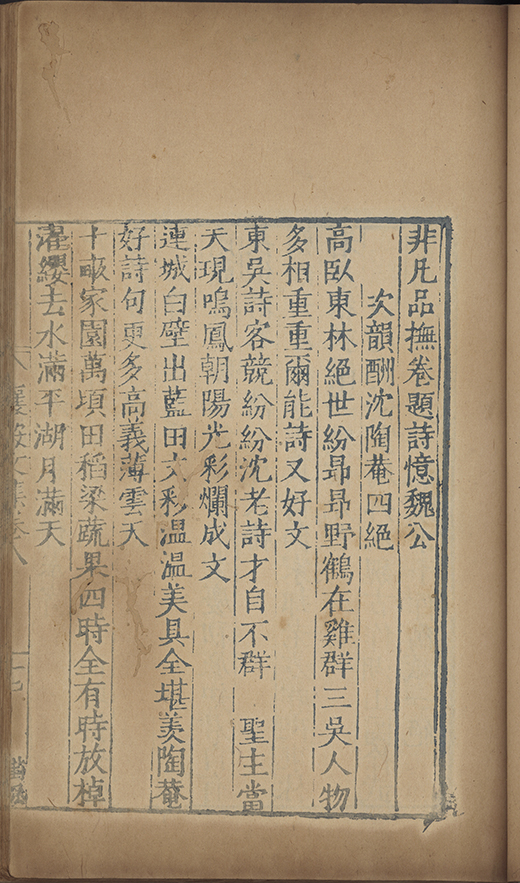 非凡品撫卷題詩憶魏公
次韻酬沈陶菴四絕
高臥東林絕世紛昻昻野鶴在雞群三吳人物
多相重重爾能詩又好文
東吳詩客競紛紛沈老詩才自不群 聖主當
天現鳴鳳朝陽光彩爛成文
連城白璧出藍田文彩温温美具全堪羨陶菴
好詩句更多高義薄雲天
十畝家園萬頃田稻梁蔬果四時全有時放棹
濯纓去水滿平湖月滿天
襄毅文集卷八